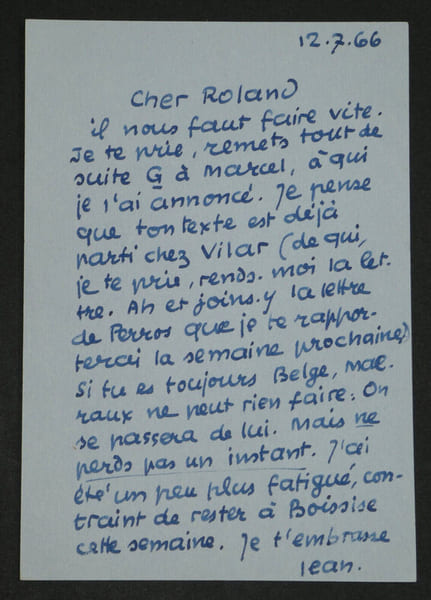 12.7.66
Cher Roland
il nous faut faire vite.
Je te prie, remets tout de
suite G à Marcel, à qui
je l'ai annoncé. Je pense
que ton texte est déjà
parti chez Vilar (de qui,
je te prie, rends-moi la let-
tre. Ah et joins-y la lettre
de Perros que je te rappor-
terai la semaine prochaine)
Si tu es toujours Belge, Mal-
raux ne peut rien faire. On
se passera de lui. Mais ne
perds pas un instant. J'ai
été un peu plus fatigué, con-
traint de rester à Boissise
cette semaine. Je t'embrasse
Jean.